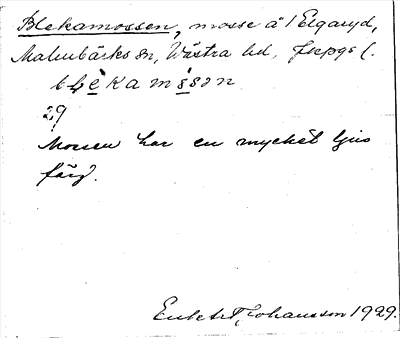 Blekamossen, mosse å 1 Elgaryd,
Malmbäcks sn, Västra hd, Jkpgs l.
blèkamsson
29
Mossen har en mycket ljus
färg.
Enl. Johansson 1929.